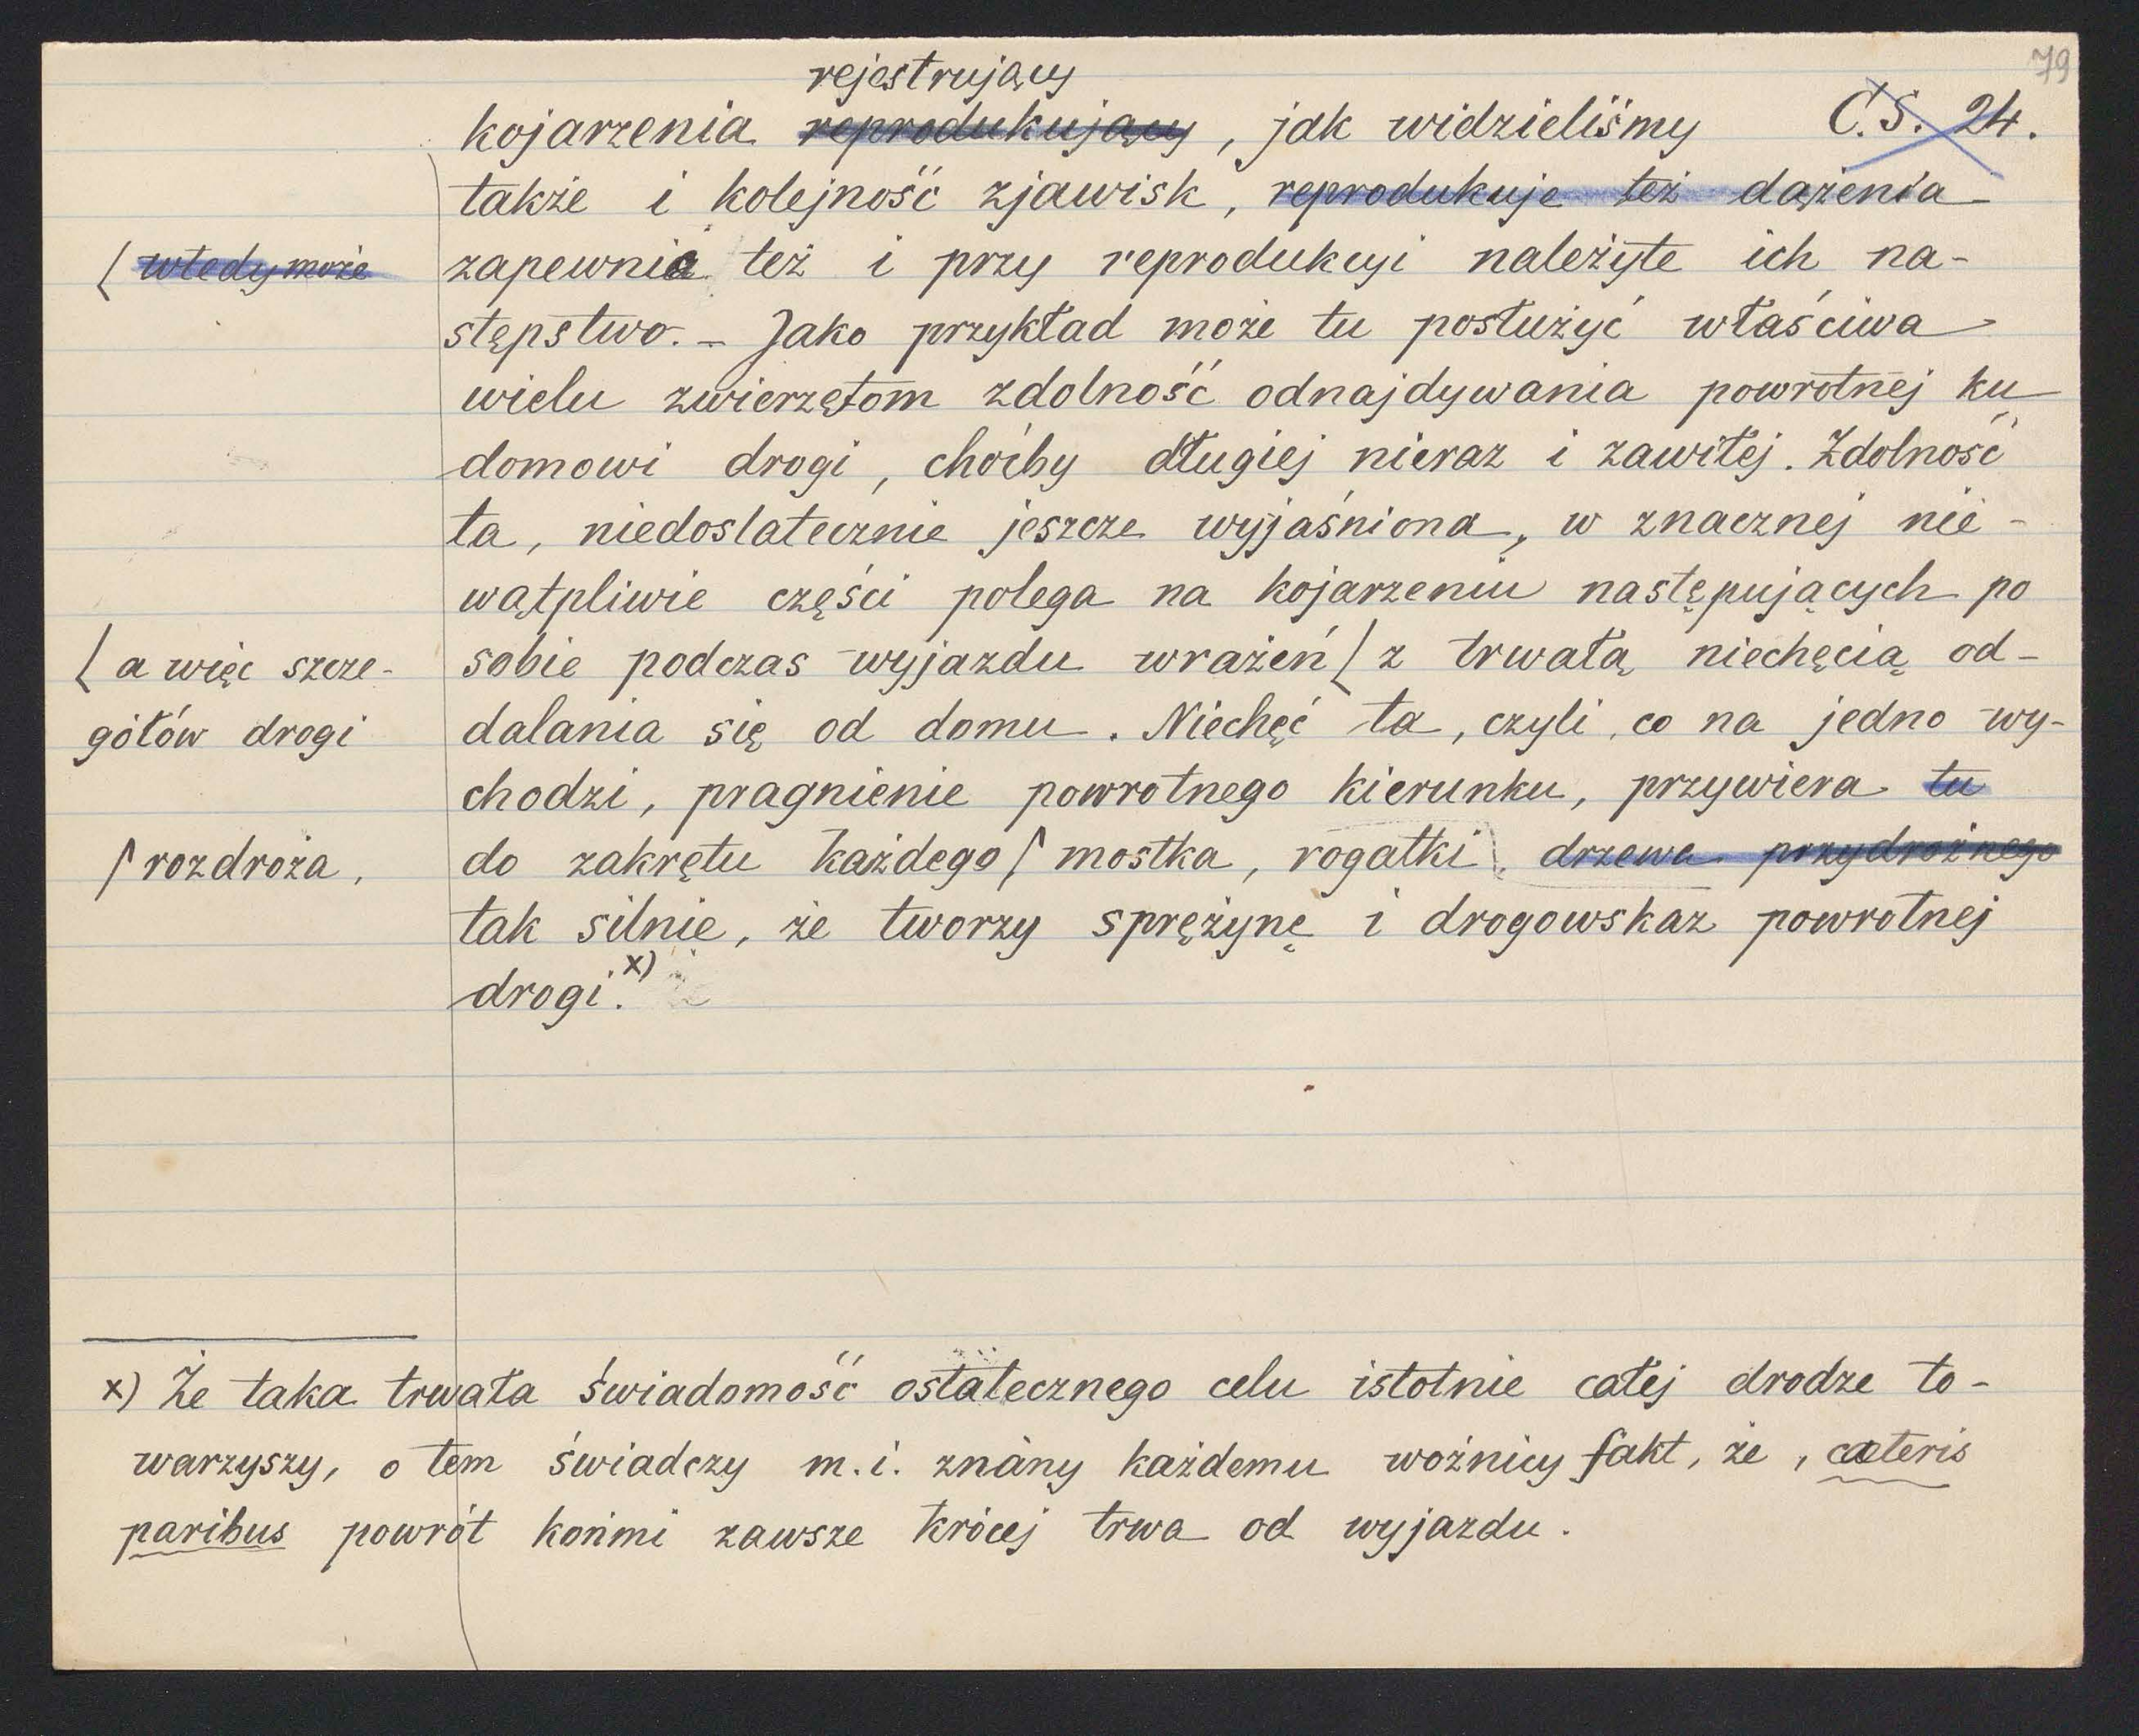 79
rejestrujący
kojarzenia reprodukujący, jak widzieliśmy
C.S. 24.
także i kolejność zjawisk, reprodukuje też dążenia
( wtedy może
zapewnia też i przy reprodukcyi należyte ich na-
stępstwo. – Jako przykład może tu posłużyć właściwa
wielu zwierzętom zdolność odnajdywania powrotnej ku
domowi drogi, choćby długiej nieraz i zawiłej. Zdolność
ta, niedostatecznie jeszcze wyjaśniona, w znacznej nie-
wątpliwie części polega na kojarzeniu następujących po
sobie podczas wyjazdu wrażeń ( z trwałą niechęcią od-
( a więc szcze-
gółów drogi
dalania się od domu. Niechęć ta, czyli co na jedno wy-
chodzi, pragnienie powrotnego kierunku, przywiera tu
do zakrętu każdego / mostka, rogatki, drzewa przydrożnego
/ rozdroża,
tak silnie, że tworzy sprężynę i drogowskaz powrotnej
drogi. x)
x) Że taka trwała świadomość ostatecznego celu istotnie całej drodze to-
warzyszy, o tem świadczy m. i. znany każdemu woźnicy fakt, że, caeteris
paribus powrót końmi zawsze krócej trwa od wyjazdu.